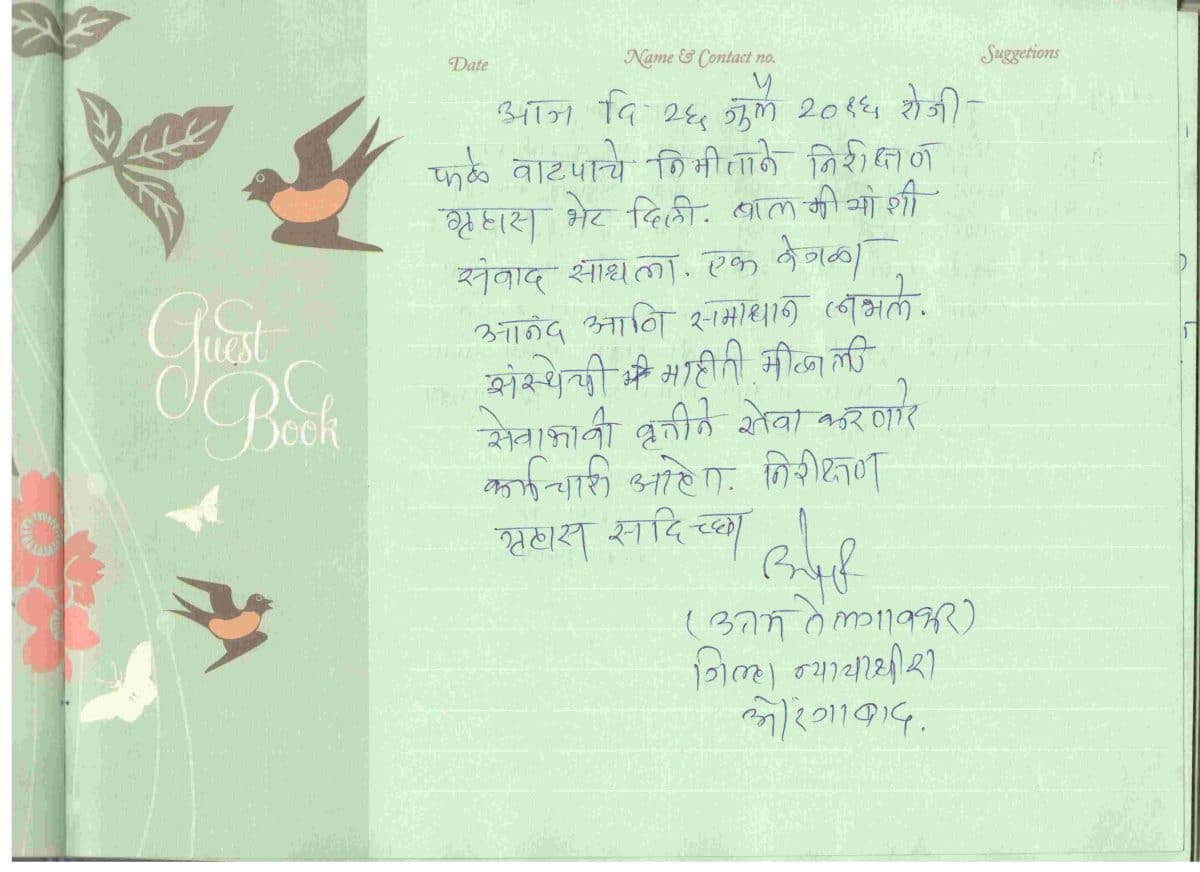 Guest
Book
Date Name & Contact no. Suggetions
आज दि २६ जुलै २०१६ रोजी
फळे वाटपाचे निमीत्ताने निरीक्षण
गृहास भेट दिली. बालमीयांशी
संवाद साधला. एक वेगळा
आनंद आणि समाधान लाभले.
संस्थेची माहीती मीळाली
सेवाभावी वृत्तीने सेवा करणारे
कर्मचारी आहेत. निरीक्षण
गृहास सदिच्छा
(उत्तम तेलगावकर)
जिल्हा न्यायाधीश
औरंगाबाद.